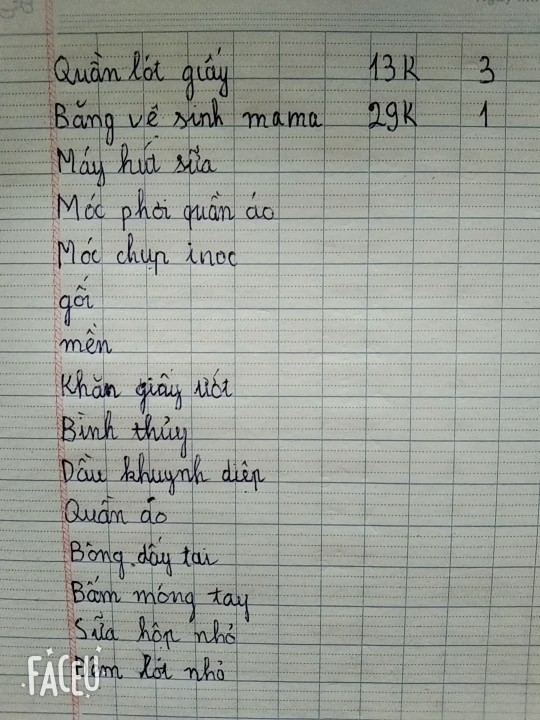 Quần lót giấy 13K 3
Băng vệ sinh mama 29K 1
Máy hút sữa
Móc phơi quần áo
Móc chụp inoc
gối
mền
Khăn giấy ướt
Bình thủy
Dầu khuynh diệp
Quần áo
Bông dấy tai
Bấm móng tay
Sữa hộp nhỏ
lót nhỏ
FACEU